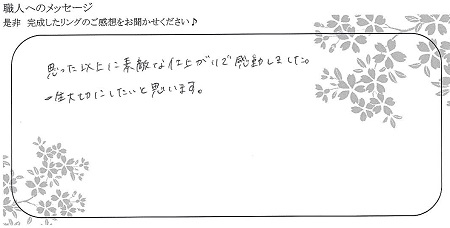 職人へのメッセージ
是非 完成したリングのご感想をお聞かせください♪
思った以上に素敵な仕上がりで感動しました。
一生大切にしたいと思います。